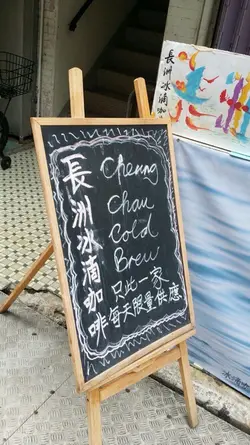 長洲冰滴咖啡
Cheung
Chau
Cold
Brew
只此一家
每天限量供應
長洲冰滴咖